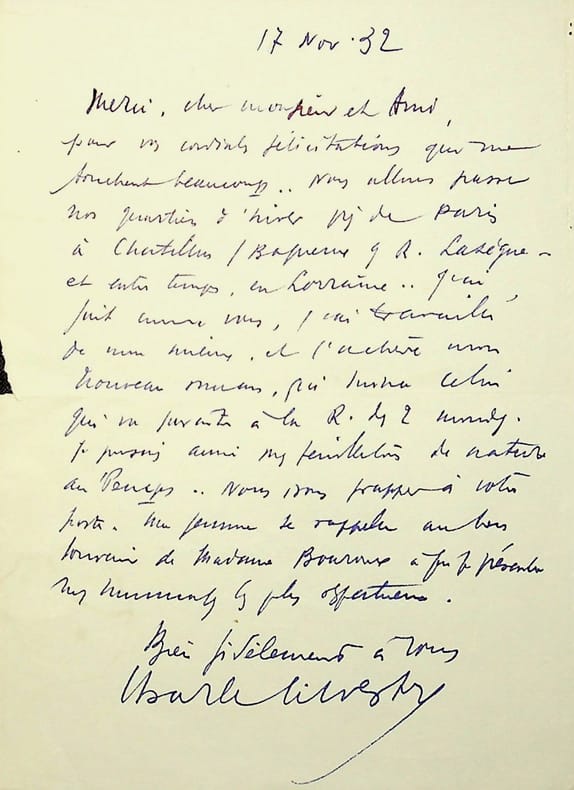 17 Nov. 32
Merci, cher monsieur et Ami,
pour vos cordiales félicitations qui me
touchent beaucoup.. Nous allons passer
nos quartiers d'hiver près de Paris
à Chatillon / Bagneux 9 R. Lasègue -
et entre temps, en Lorraine.. J'ai,
comme vous, j'ai travaillé
de mon mieux, et j'achève mon
nouveau roman, qui suivra celui
qui va paraître à la R. des 2 mondes.
Je poursuis aussi mes feuilletons de nature
au Temps.. Nous irons frapper à votre
porte. Ma femme se rappelle au bon
souvenir de Madame Bouroux à qui je présente
mes hommages les plus respectueux.
Bien fidèlement à vous
Charles Silvestre